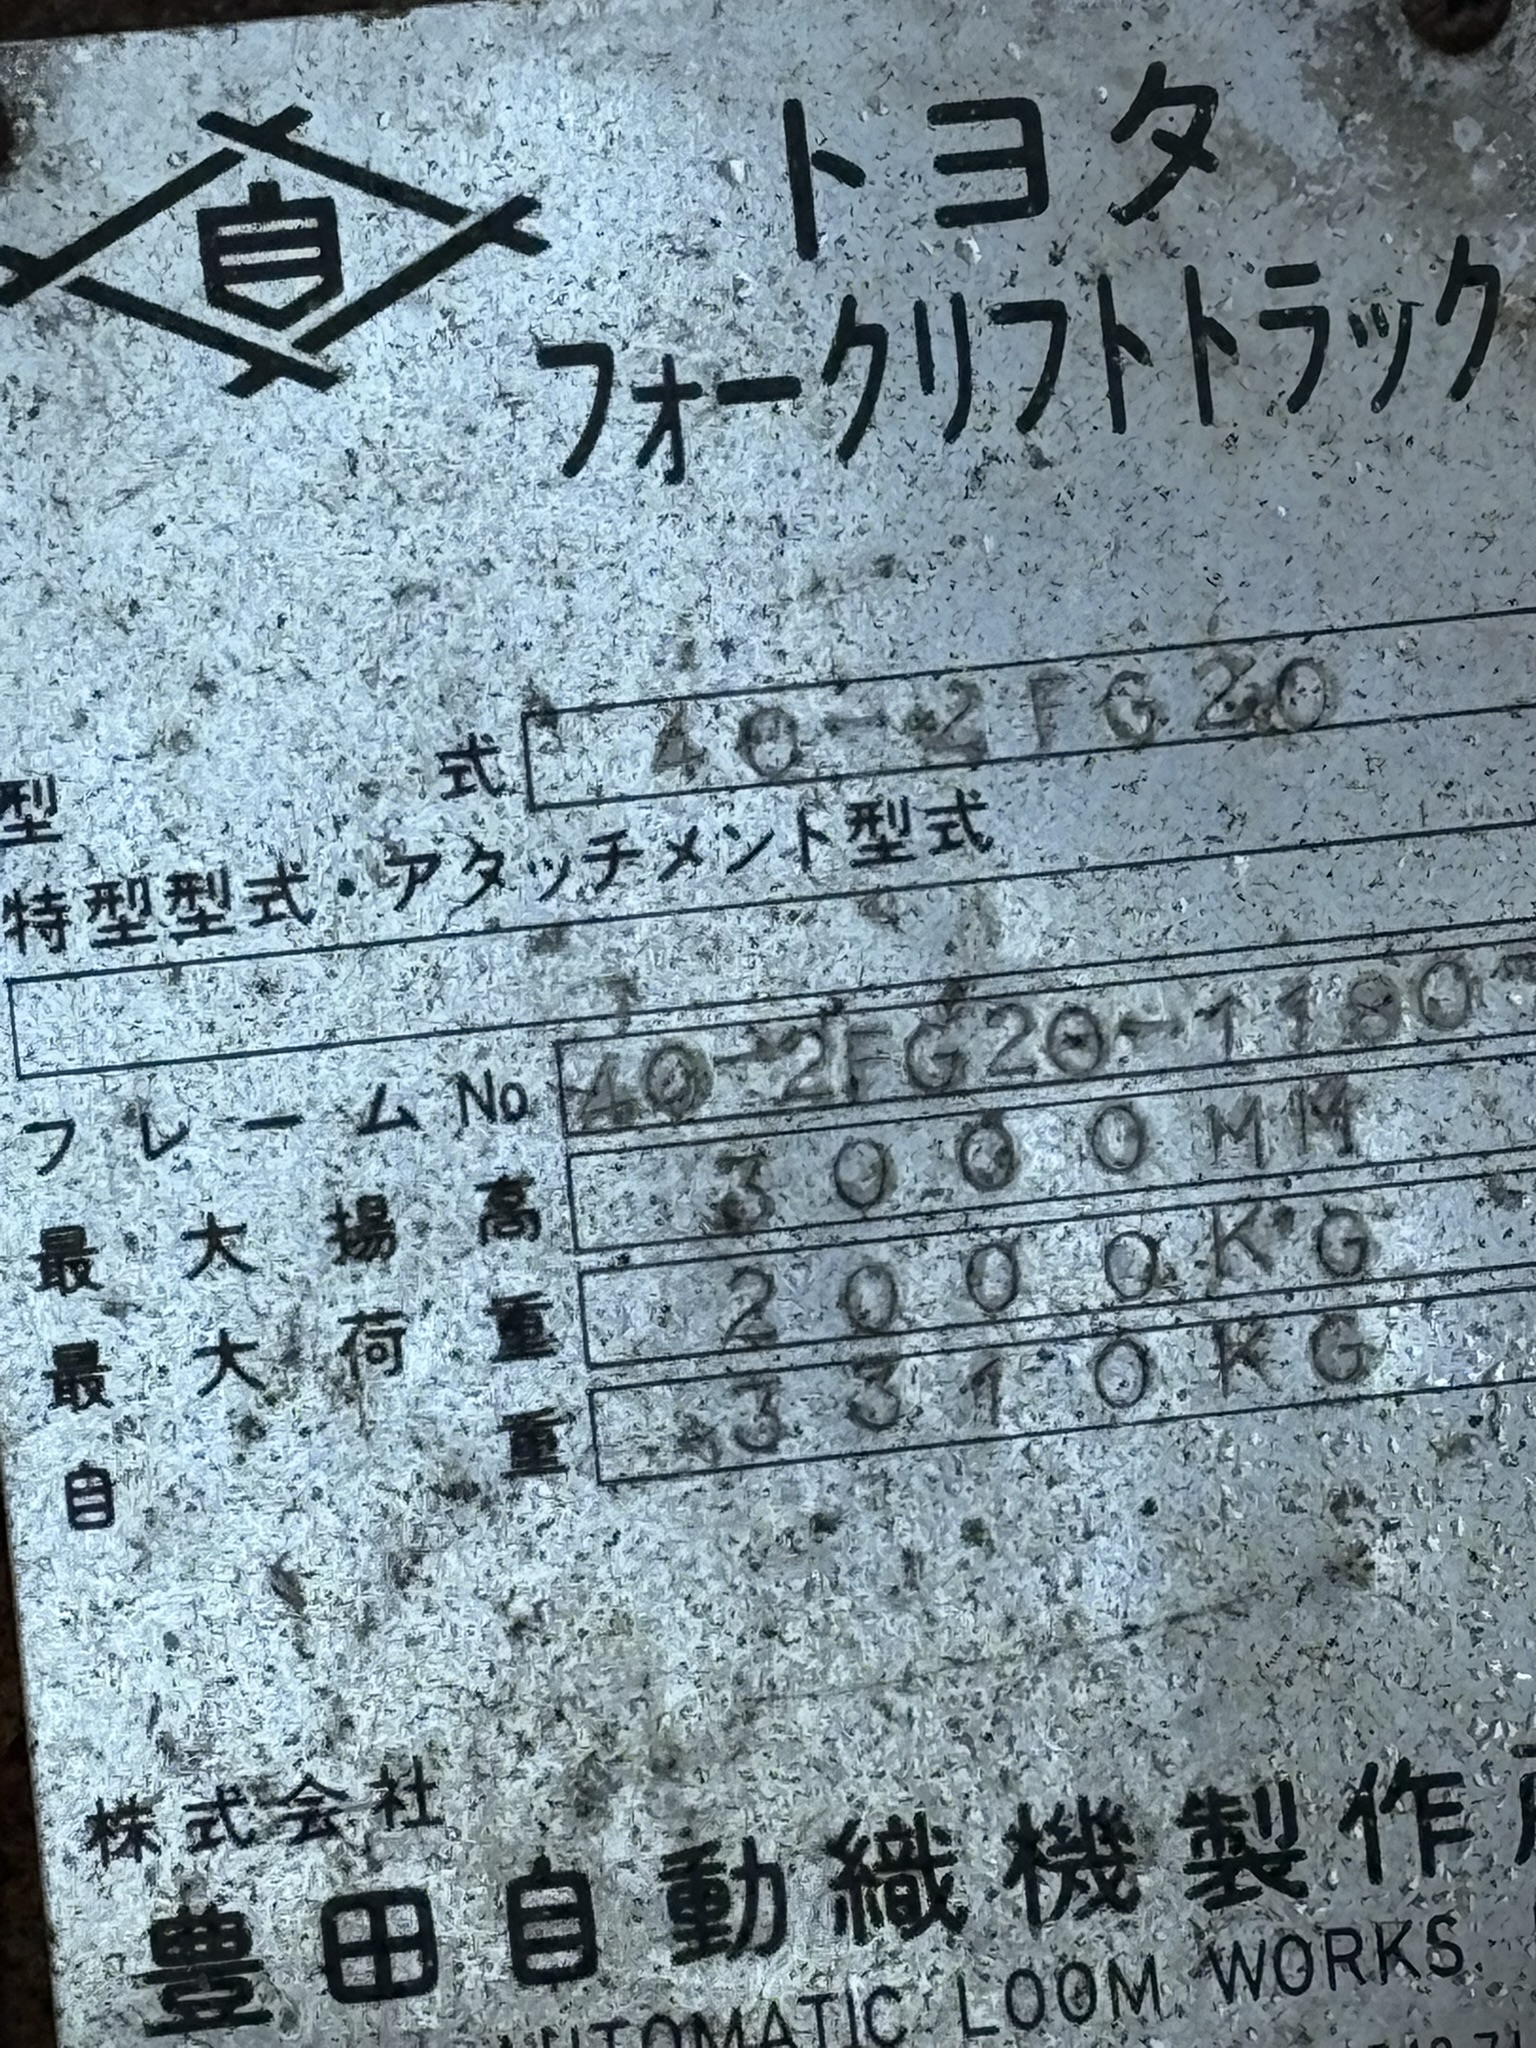 トヨタ
フォークリフトトラック
型式 40-2FG20
特型型式・アタッチメント型式
フレームNo 40-2FG20-1180
最大揚高 3000MM
最大荷重 2000KG
自重 3310KG
株式会社
豊田自動織機製作
AUTOMATIC LOOM WORKS